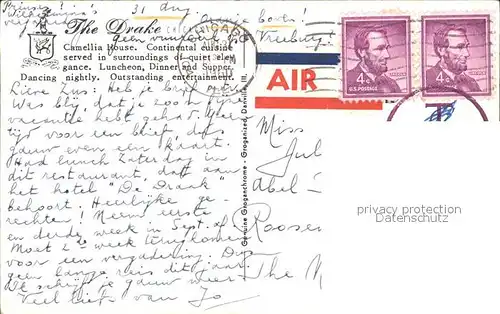 31 Aug.
The Drake
CHICAGO
geen
Camellia House. Continental cuisine
served in surroundings of quiet ele-
gance. Luncheon, Dinner and Supper.
Dancing nightly. Outstanding entertainment.
AIR
4¢
U.S. POSTAGE
4¢
U.S. POSTAGE
T
Lieve Zus: Heb je brief
Was blij, dat je zo'n fijne
vacantie hebt gehad. Geen
tijd voor een brief, dus
gauw even een kaart.
Had lunch Zaterdag in
dit restaurant, dat aan
het hotel "De Draak"
behoort. Heerlijke ge-
rechten! Neem eerste
en derde week in Sept. af.
Moet 2de week terugkomen
voor een vergadering. Dus
geen lange reis dit jaar.
Ik schrijf je gauw weer.
Veel liefs van Jo
Genuine Groganchrome - Groganized, Danville, Ill.
Miss
Jul
Abel
Roosen
The N
privacy protection
Datenschutz